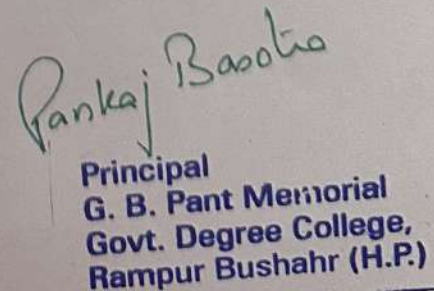 Pankaj Basotra
Principal
G. B. Pant Memorial
Govt. Degree College,
Rampur Bushahr (H.P.)